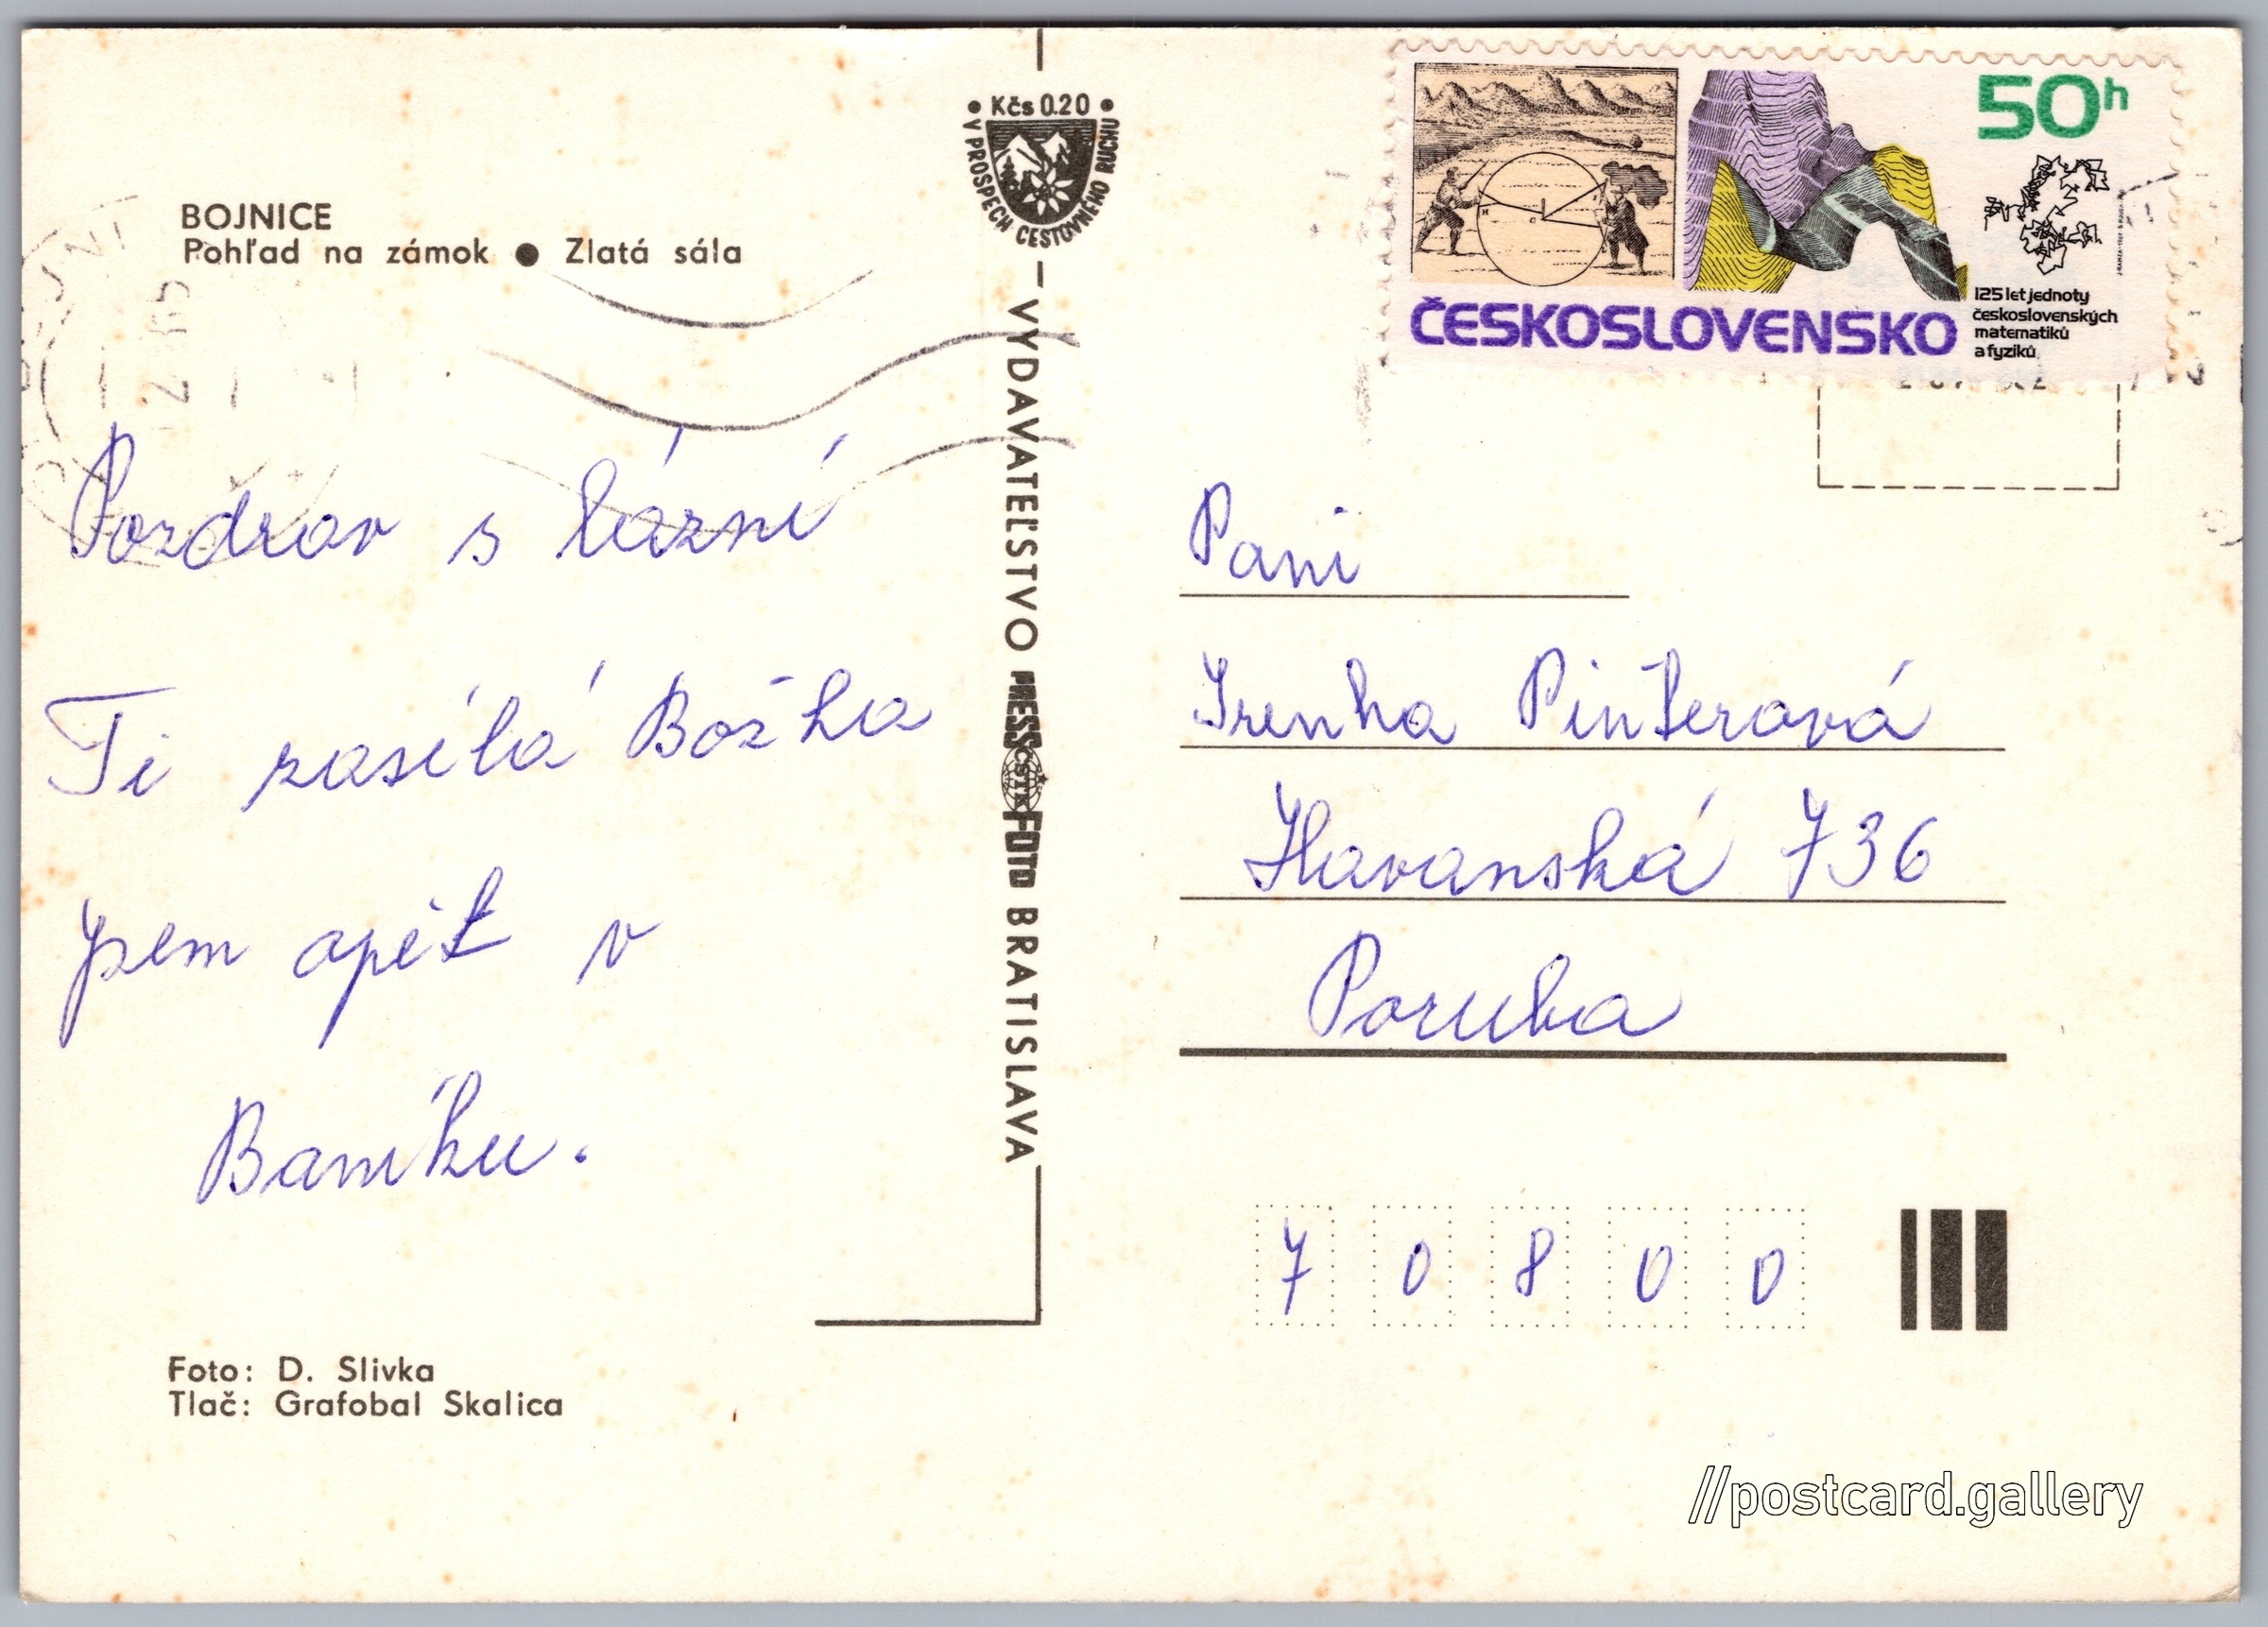 BOJNICE
Pohľad na zámok ● Zlatá sála
Pozdrav s lázní
Ti zasílá Božka
jsem opět v
Baníku.
Foto: D. Slivka
Tlač: Grafobal Skalica
• Kčs 0.20 •
V PROSPECH CESTOVNÉHO RUCHU
VYDAVATEĽSTVO PRESSFOTO BRATISLAVA
ČSTK
50h
125 let jednoty
československých
matematiků
a fyziků
ČESKOSLOVENSKO
Paní
Irenka Pinterová
Havanská 736
Poruba
7 0 8 0 0
//postcard.gallery